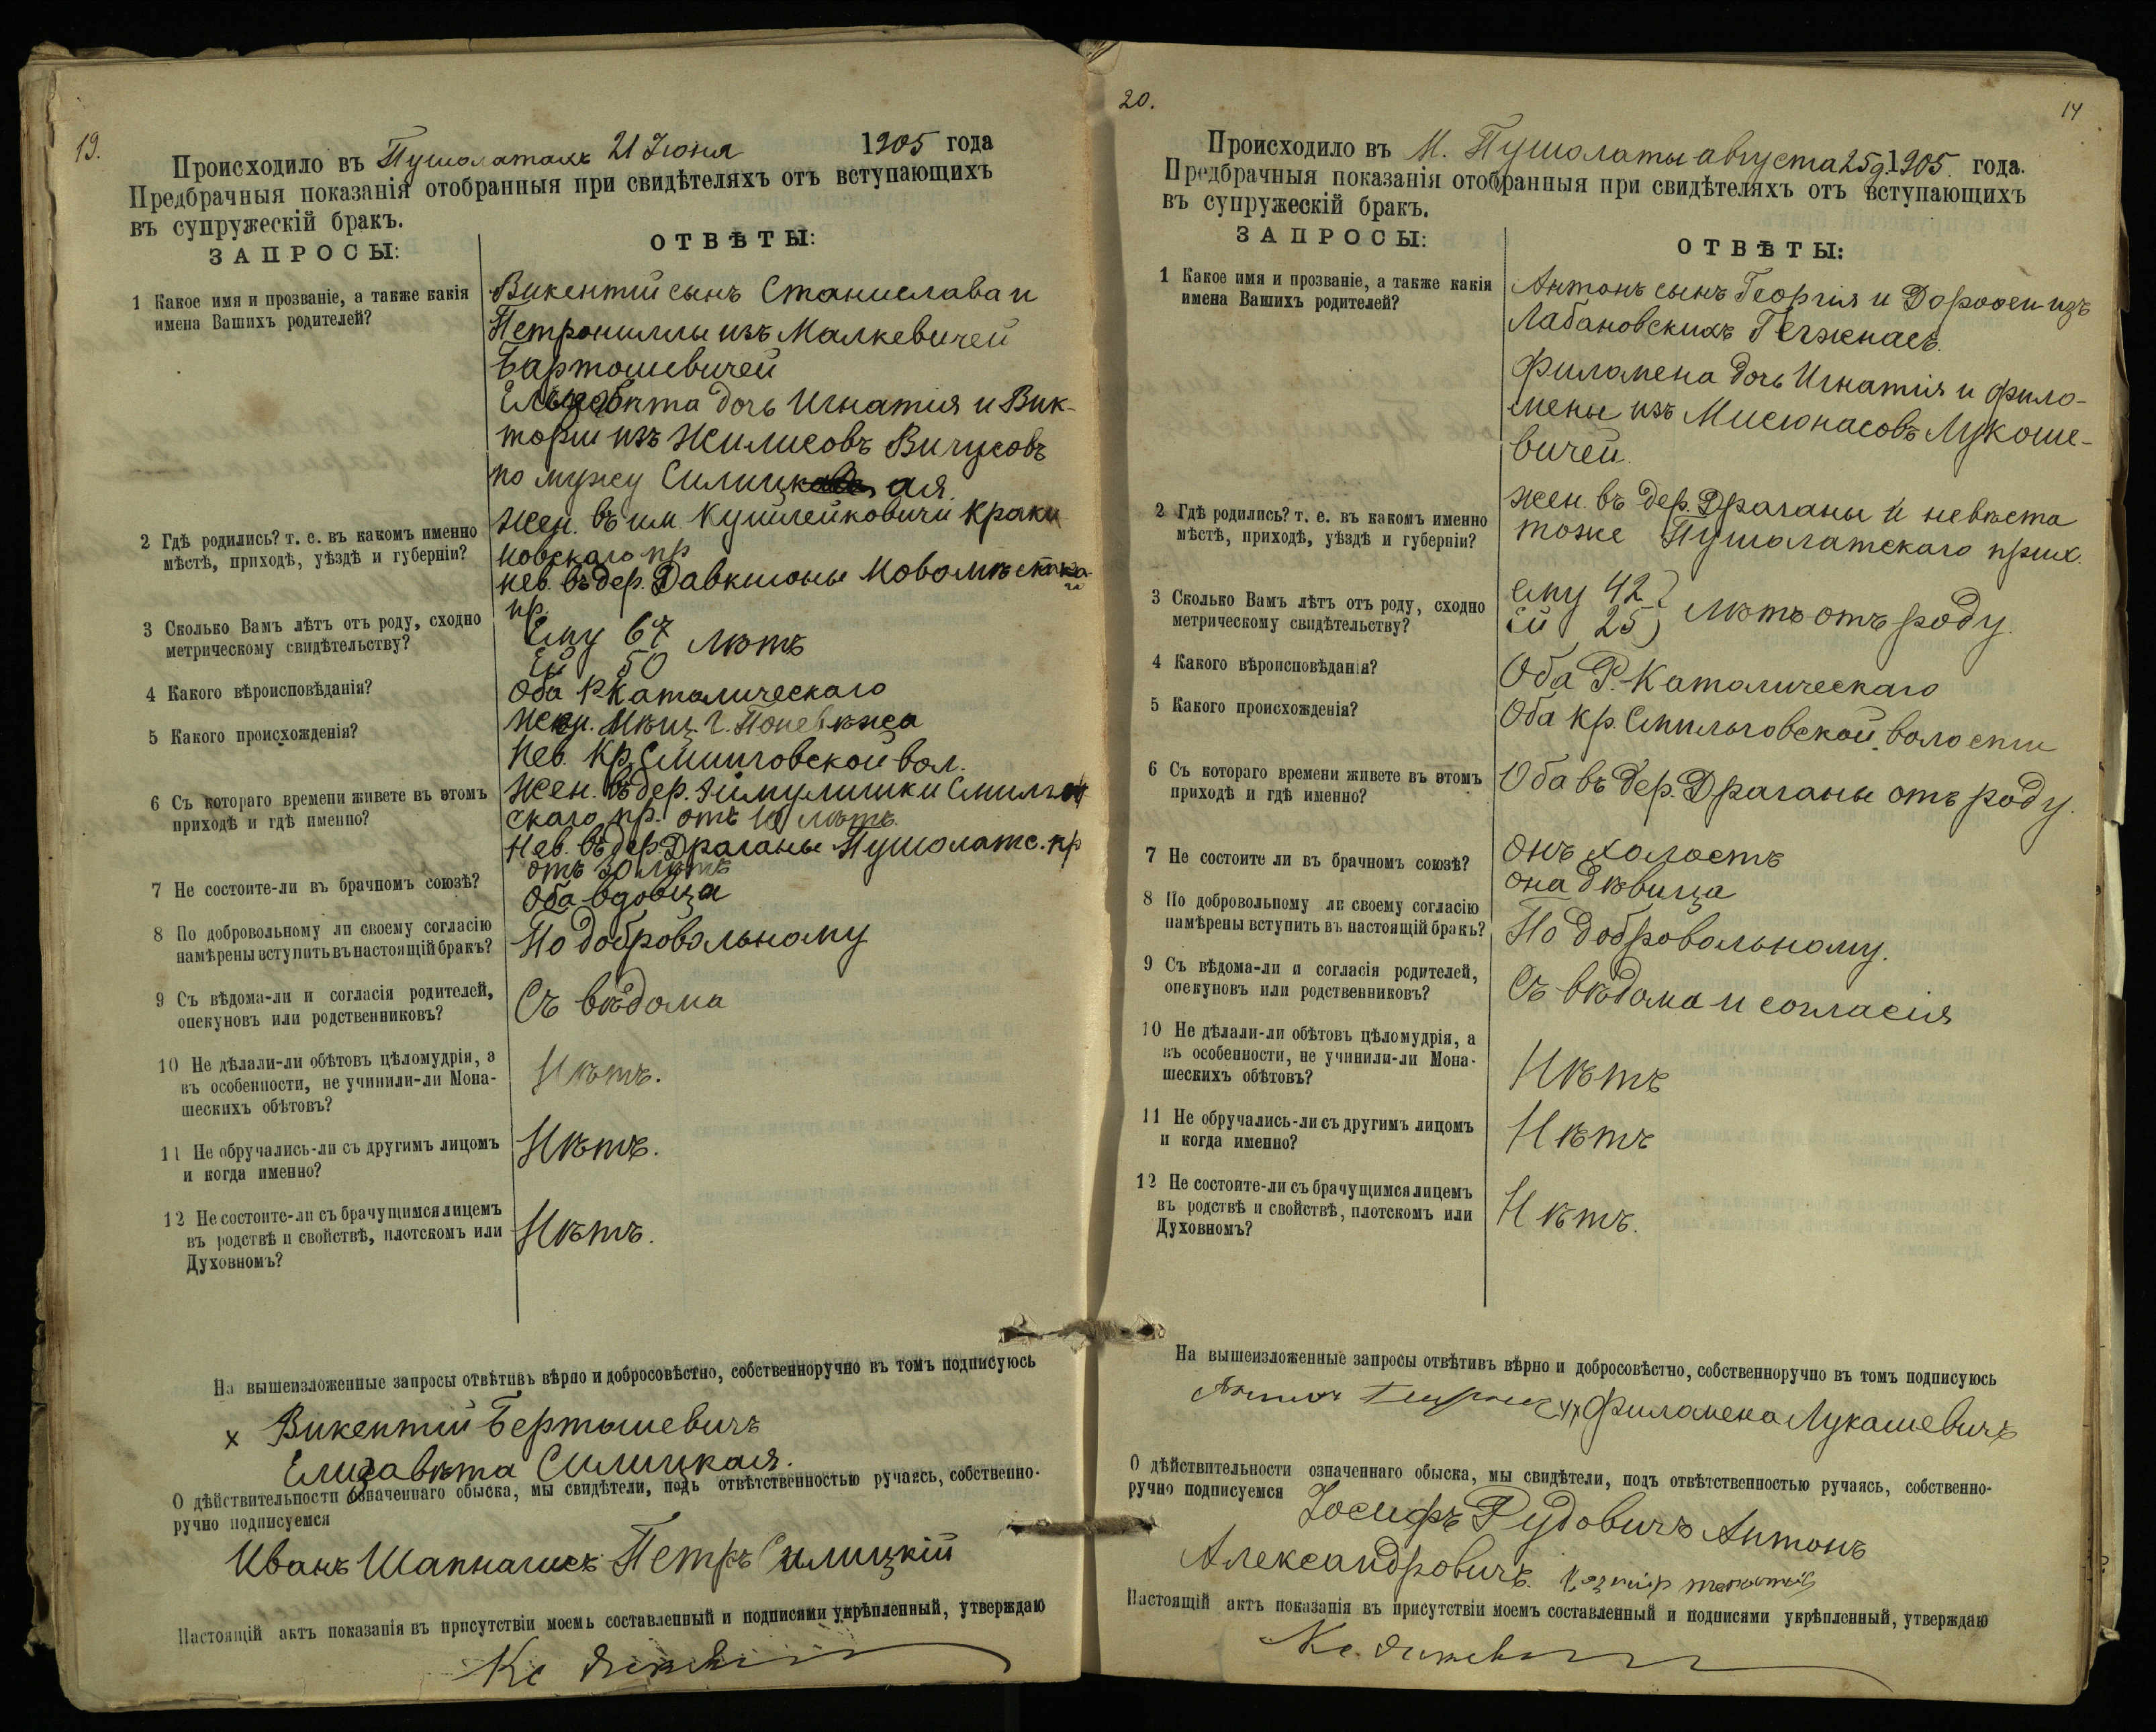 19.
Происходило въ Пушолатахъ 21 Іюня 1905 года
Предбрачныя показанія отобранныя при свидѣтеляхъ отъ вступающихъ
въ супружескій бракъ.
ЗАПРОСЫ:
ОТВѢТЫ:
1 Какое имя и прозваніе, а также какія
имена Вашихъ родителей?
Викентій сынъ Станислава и
Петрониллы изъ Малкевичей
Бартошевичей
Елизавѣта дочь Игнатія и Вик-
торіи изъ Жилисовъ Вичусовъ
по мужу Силицкая.
2 Гдѣ родились? т. е. въ какомъ именно
мѣстѣ, приходѣ, уѣздѣ и губерніи?
Жен. въ им. Кушлейковичи Краки
новскаго пр
нев. въ дер. Давкшоны Новомѣстка-
го
пр.
3 Сколько Вамъ лѣтъ отъ роду, сходно
метрическому свидѣтельству?
Ему 67 лѣтъ
Ей 50
4 Какого вѣроисповѣданія?
Оба Р Католическаго
5 Какого происхожденія?
Жен. Мѣщ. г. Поневѣжа
Нев. Кр. Смильговской вол.
6 Съ котораго времени живете въ этомъ
приходѣ и гдѣ именно?
Жен. въ дер. Смильгов
скаго пр. отъ 10 лѣтъ.
Нев. въ дер. Драганы Пушолатс. пр
отъ 30 лѣтъ
7 Не состоите-ли въ брачномъ союзѣ?
Оба вдовца
8 По добровольному ли своему согласію
намѣрены вступить въ настоящій бракъ?
По добровольному
9 Съ вѣдома-ли и согласія родителей,
опекуновъ или родственниковъ?
Съ вѣдома
10 Не дѣлали-ли обѣтовъ цѣломудрія, а
въ особенности, не учинили-ли Мона-
шескихъ обѣтовъ?
Нѣтъ.
11 Не обручались-ли съ другимъ лицомъ
и когда именно?
Нѣтъ.
12 Не состоите-ли съ брачущимся лицемъ
въ родствѣ и свойствѣ, плотскомъ или
Духовномъ?
Нѣтъ.
На вышеизложенные запросы отвѣтивъ вѣрно и добросовѣстно, собственноручно въ томъ подписуюсь
х Викентій Бертошевичъ
Елизавѣта Силицкая.
О дѣйствительности означеннаго обыска, мы свидѣтели, подъ отвѣтственностью ручаясь, собственно-
ручно подписуемся
Иванъ Петръ Силицкій
Настоящій актъ показанія въ присутствіи моемъ составленный и подписями укрѣпленный, утверждаю
Кс
20.
14
Происходило въ М. Пушолаты августа 25 д. 1905 года.
Предбрачныя показанія отобранныя при свидѣтеляхъ отъ вступающихъ
въ супружескій бракъ.
ЗАПРОСЫ:
ОТВѢТЫ:
1 Какое имя и прозваніе, а также какія
имена Вашихъ родителей?
Антонъ сынъ Георгія и Дорофеи изъ
Лабановскихъ Гегжнасъ.
Филамена дочь Игнатія и Фило-
мены изъ Мисюнасовъ Лукоше-
вичей.
2 Гдѣ родились? т. е. въ какомъ именно
мѣстѣ, приходѣ, уѣздѣ и губерніи?
Жен. въ дер. Драганы и невѣста
тоже Пушолатскаго прих.
3 Сколько Вамъ лѣтъ отъ роду, сходно
метрическому свидѣтельству?
ему 42
ей 25 } лѣтъ отъ роду.
4 Какого вѣроисповѣданія?
Оба Р.-Католическаго
5 Какого происхожденія?
Оба кр. Смильговской волости
6 Съ котораго времени живете въ этомъ
приходѣ и гдѣ именно?
Оба въ дер. Драганы отъ роду.
7 Не состоите ли въ брачномъ союзѣ?
Онъ холостъ
она дѣвица
8 По добровольному ли своему согласію
намѣрены вступить въ настоящій бракъ?
По добровольному.
9 Съ вѣдома-ли и согласія родителей,
опекуновъ или родственниковъ?
Съ вѣдома и согласія
10 Не дѣлали-ли обѣтовъ цѣломудрія, а
въ особенности, не учинили-ли Мона-
шескихъ обѣтовъ?
Нѣтъ
11 Не обручались-ли съ другимъ лицомъ
и когда именно?
Нѣтъ
12 Не состоите-ли съ брачущимся лицемъ
въ родствѣ и свойствѣ, плотскомъ или
Духовномъ?
Нѣтъ.
На вышеизложенные запросы отвѣтивъ вѣрно и добросовѣстно, собственноручно въ томъ подписуюсь
Филамена Лукашевичъ
О дѣйствительности означеннаго обыска, мы свидѣтели, подъ отвѣтственностью ручаясь, собственно-
ручно подписуемся
Іосифъ Рудовичъ Антонъ
Александровичъ.
Настоящій актъ показанія въ присутствіи моемъ составленный и подписями укрѣпленный, утверждаю
Кс.